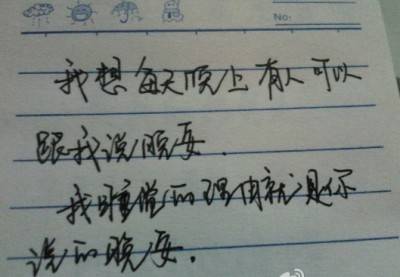 No:
我想每天晚上有人可以
跟我说晚安.
我睡觉的理由就是你
说的晚安.